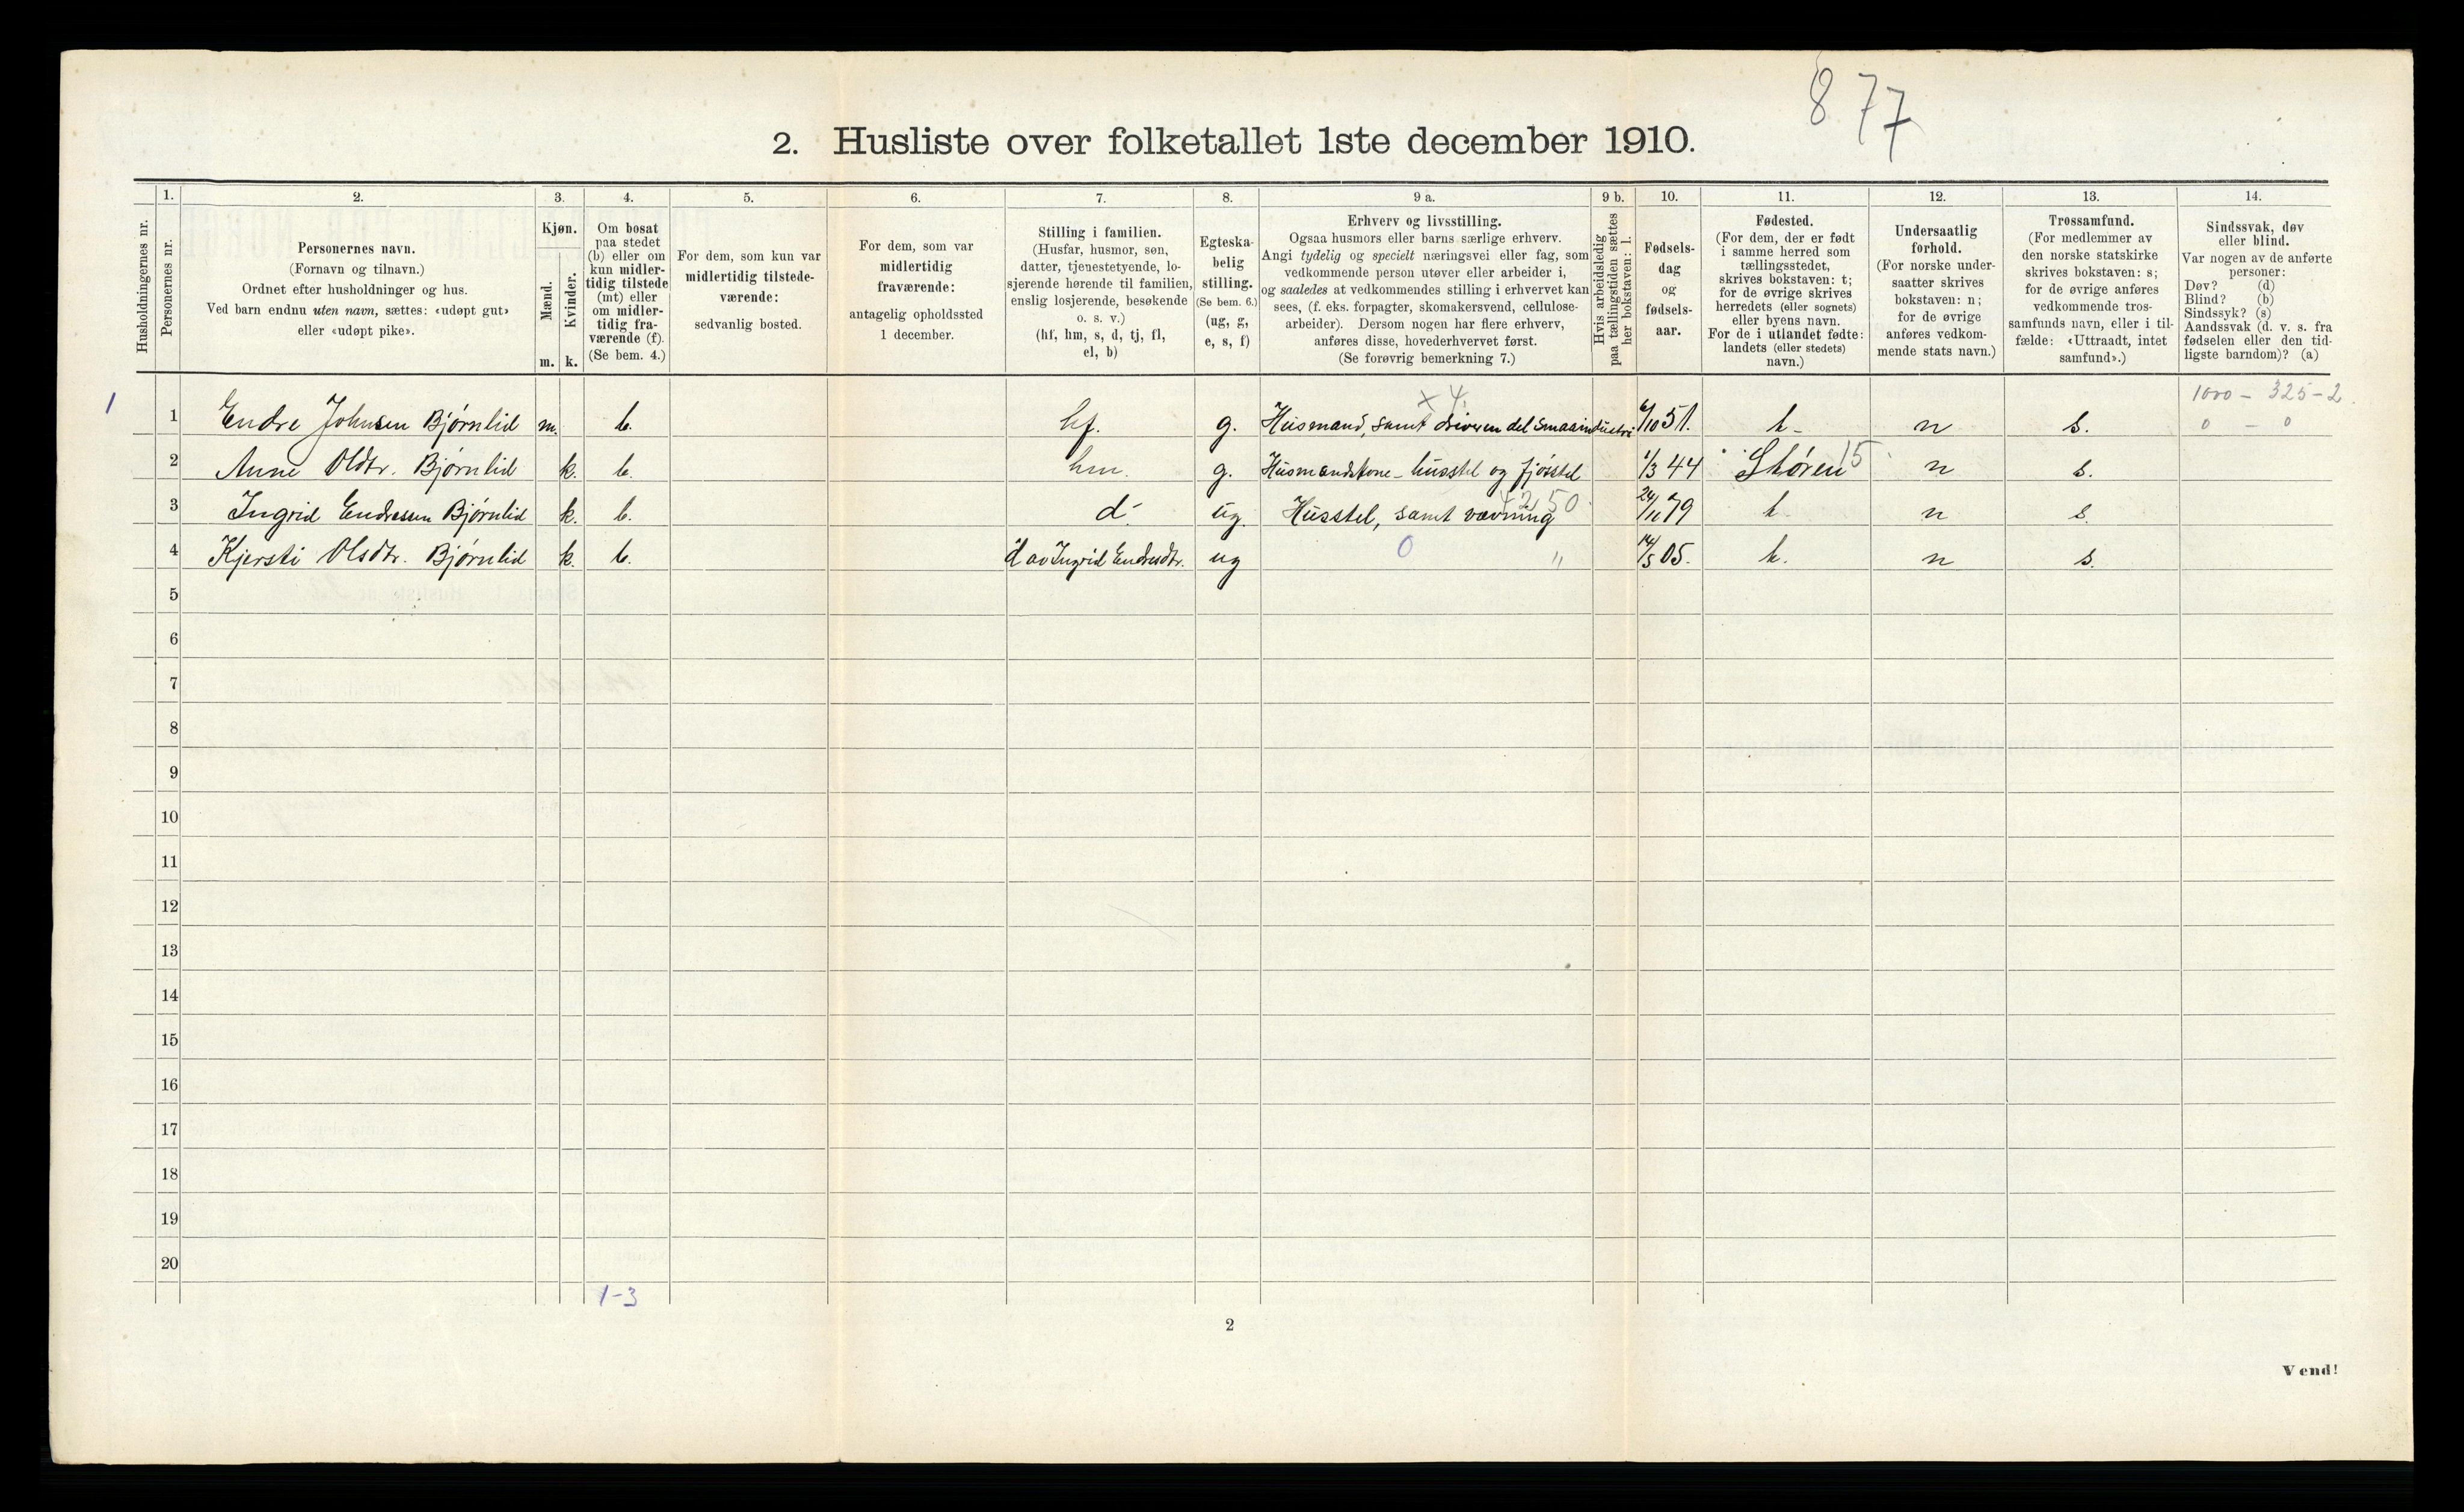 877
2. Husliste over folketallet 1ste december 1910.
Husholdningernes nr.
1.
Personernes nr.
2.
Personernes navn.
(Fornavn og tilnavn.)
Ordnet efter husholdninger og hus.
Ved barn endnu uten navn, sættes: «udøpt gut»
eller «udøpt pike».
3.
Kjøn.
Mænd.
Kvinder.
m. k.
4.
Om bosat
paa stedet
(b) eller om
kun midler-
tidig tilstede
(mt) eller
om midler-
tidig fra-
værende (f).
(Se bem. 4.)
5.
For dem, som kun var
midlertidig tilstede-
værende:
sedvanlig bosted.
6.
For dem, som var
midlertidig
fraværende:
antagelig opholdssted
1 december.
7.
Stilling i familien.
(Husfar, husmor, søn,
datter, tjenestetyende, lo-
sjerende hørende til familien,
enslig losjerende, besøkende
o. s. v.)
(hf, hm, s, d, tj, fl,
el, b)
8.
Egteska-
belig
stilling.
(Se bem. 6.)
(ug, g,
e, s, f)
9 a.
Erhverv og livsstilling.
Ogsaa husmors eller barns særlige erhverv.
Angi tydelig og specielt næringsvei eller fag, som
vedkommende person utøver eller arbeider i,
og saaledes at vedkommendes stilling i erhvervet kan
sees, (f. eks. forpagter, skomakersvend, cellulose-
arbeider). Dersom nogen har flere erhverv,
anføres disse, hovederhvervet først.
(Se forøvrig bemerkning 7.)
9 b.
Hvis arbeidsledig
paa tællingstiden sættes
her bokstaven: l.
10.
Fødsels-
dag
og
fødsels-
aar.
11.
Fødested.
(For dem, der er født
i samme herred som
tællingsstedet,
skrives bokstaven: t;
for de øvrige skrives
herredets (eller sognets)
eller byens navn.
For de i utlandet fødte:
landets (eller stedets)
navn.)
12.
Undersaatlig
forhold.
(For norske under-
saatter skrives
bokstaven: n;
for de øvrige
anføres vedkom-
mende stats navn.)
13.
Trossamfund.
(For medlemmer av
den norske statskirke
skrives bokstaven: s;
for de øvrige anføres
vedkommende tros-
samfunds navn, eller i til-
fælde: «Uttraadt, intet
samfund».)
14.
Sindssvak, døv
eller blind.
Var nogen av de anførte
personer:
Døv? (d)
Blind? (b)
Sindssyk? (s)
Aandssvak (d. v. s. fra
fødselen eller den tid-
ligste barndom)? (a)
x 4.
1000 - 325 - 2.
1 1 Endre Johnsen Bjørnlid m. b. hf. g. Husmand, samt driver en del smaaindustri 6/10 51. t - n s. 0 - 0
2 Anne Olsdtr. Bjørnlid k. b. hm. g. Husmandskone - husstel og fjøsstel 1/3 44 Støren 15 n s.
42,50
3 Ingrid Endressen Bjørnlid k. b. d. ug. Husstel, samt vævning 24/11 79 t n s.
4 Kjersti Olsdtr. Bjørnlid k. b. d av Ingrid Endresdtr. ug 0 " 14/5 05. t. n s.
5
6
7
8
9
10
11
12
13
14
15
16
17
18
19
20
1-3
2
Vend!